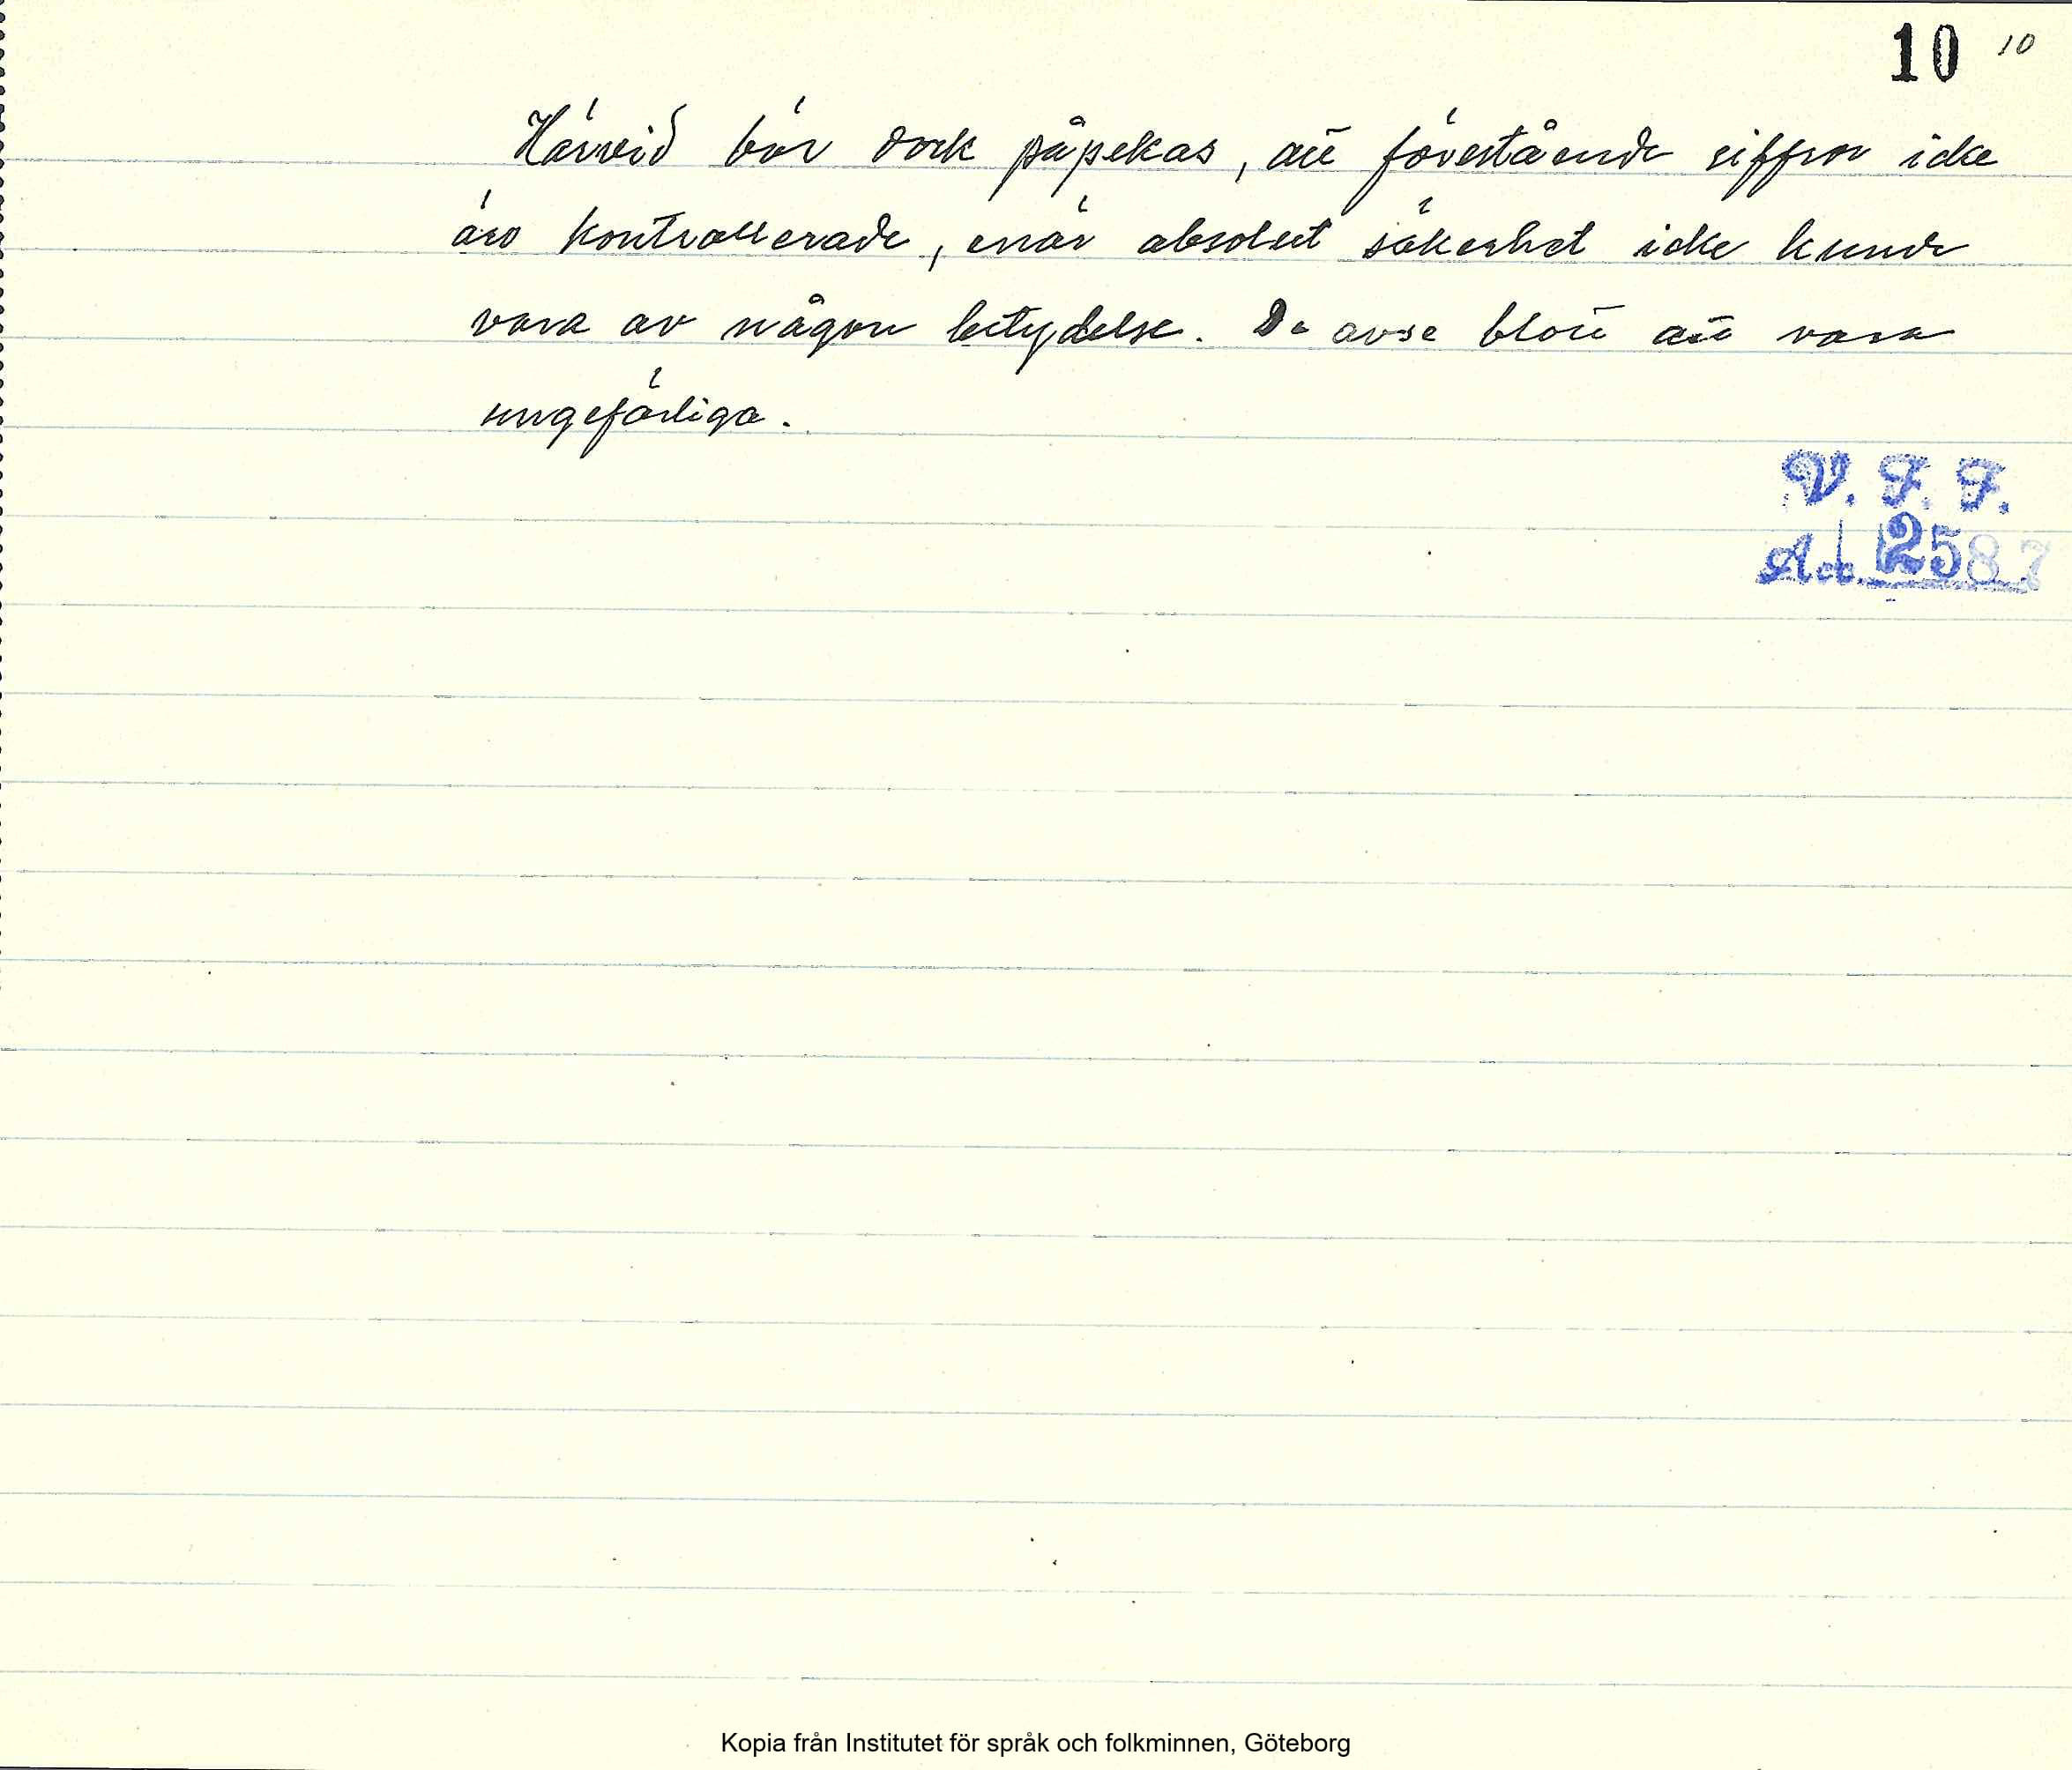 10 10
Härvid bör dock påpekas, att förestående siffror icke
äro kontrollerade, enär absolut säkerhet icke kunde
vara av någon betydelse. De avse blott att vara
ungefärliga.
V. F. F.
Ack 2587
Kopia från Institutet för språk och folkminnen, Göteborg